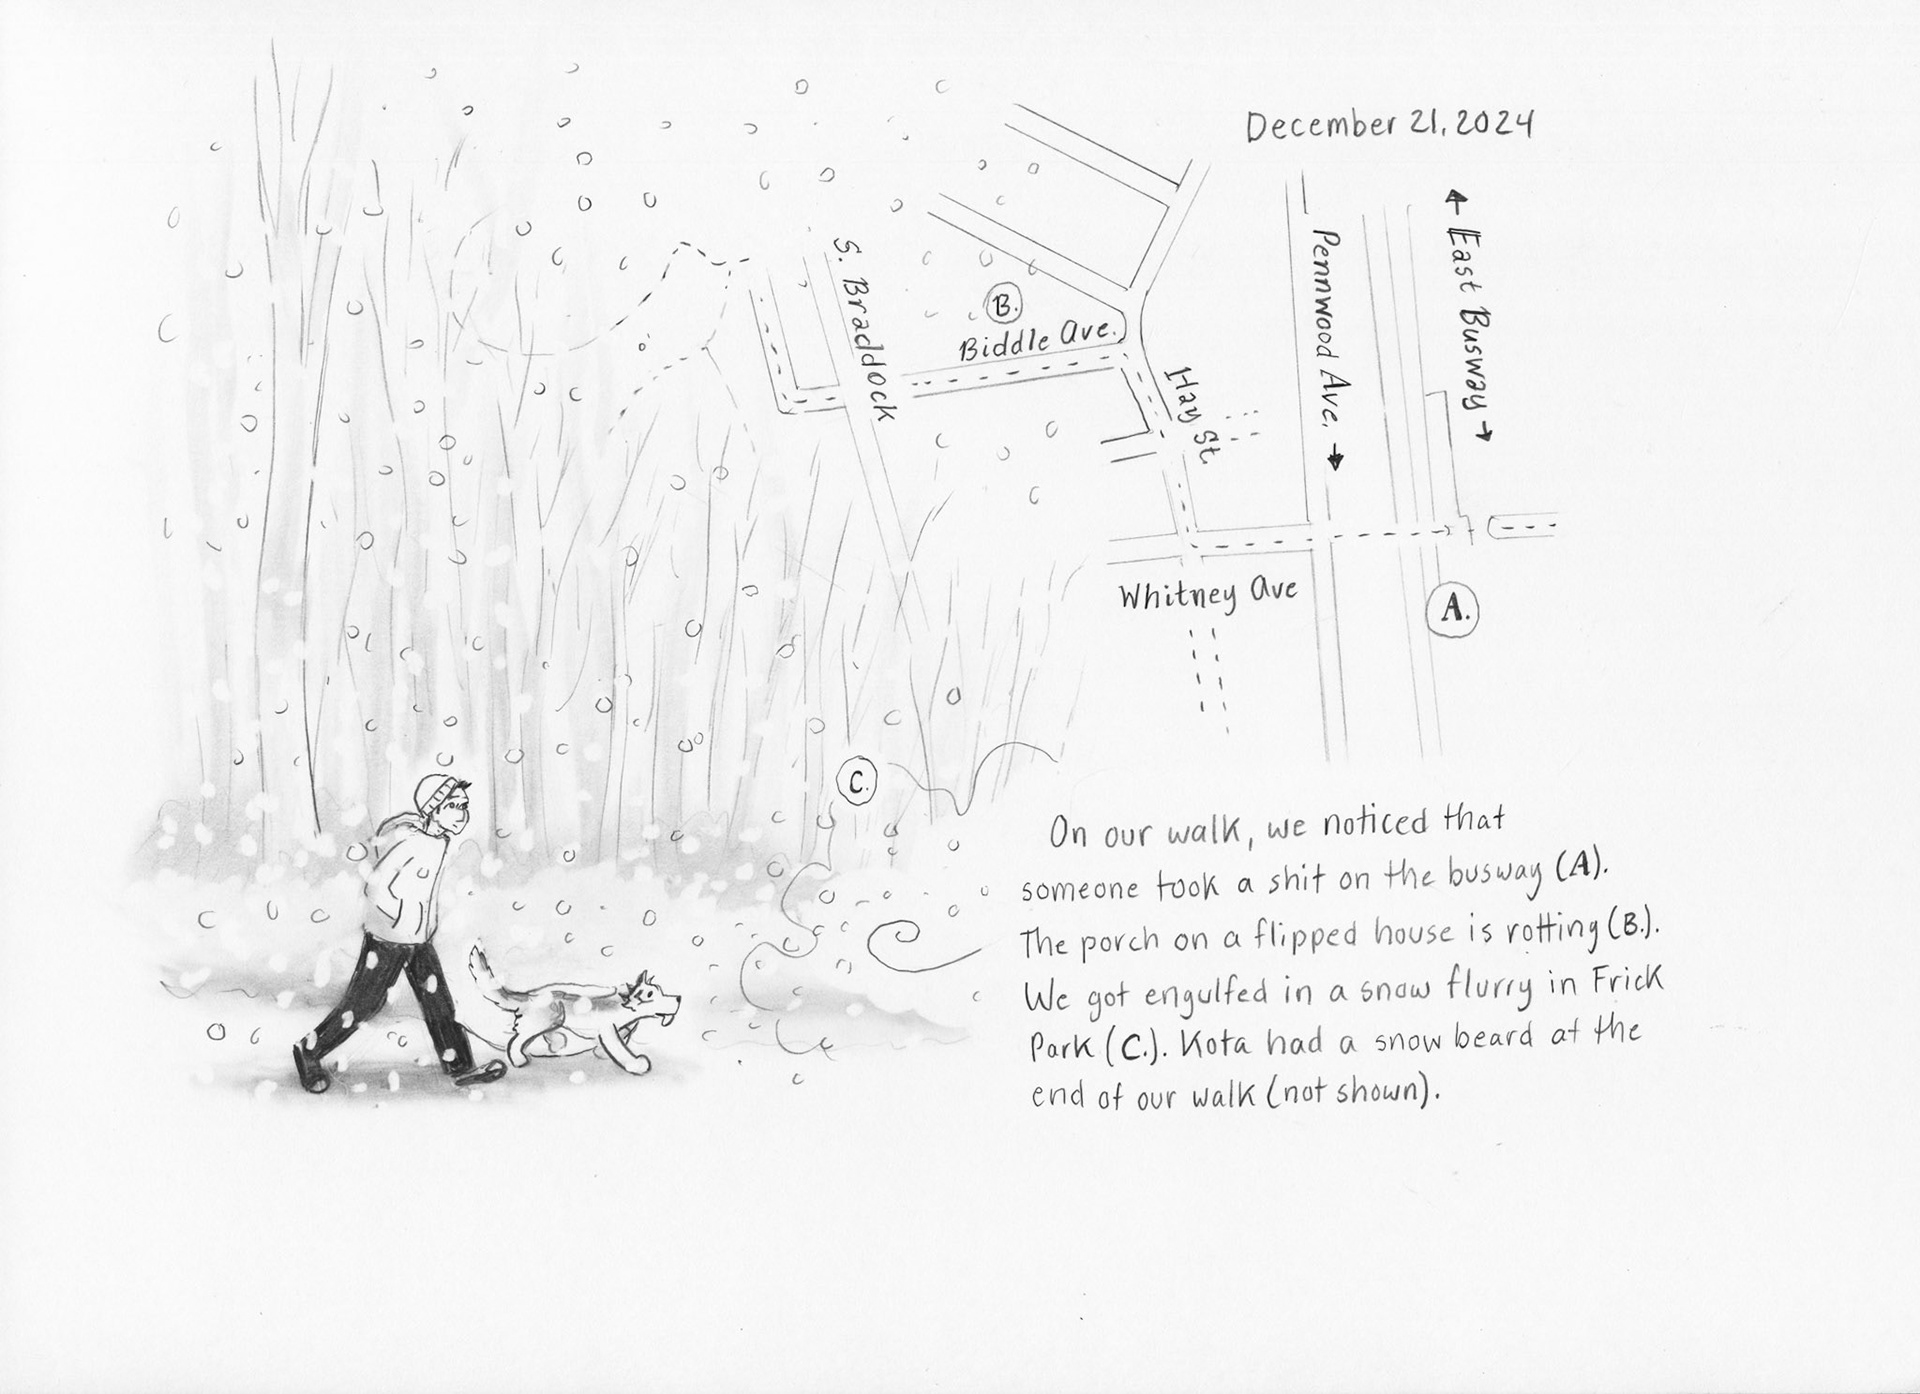 December 21, 2024
East Busway
Pennwood Ave.
S. Braddock
B.
Biddle Ave.
Hay St.
Whitney Ave
A.
C.
On our walk, we noticed that
someone took a shit on the busway (A).
The porch on a flipped house is rotting (B.).
We got engulfed in a snow flurry in Frick
Park (C.). Kota had a snow beard at the
end of our walk (not shown).